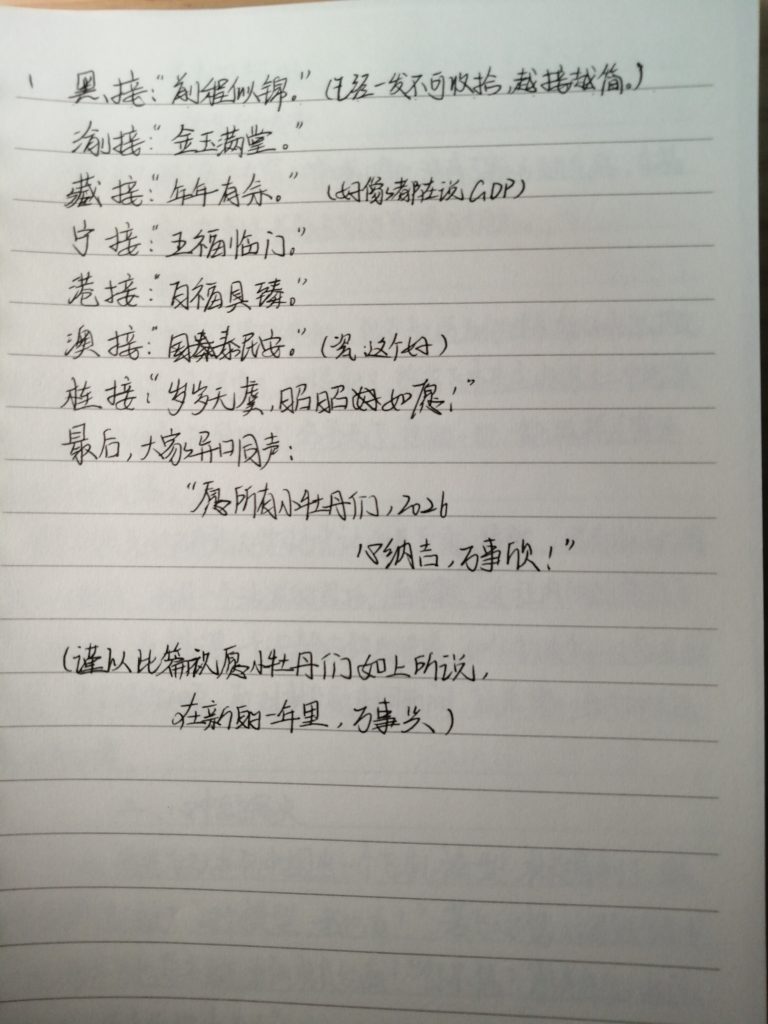 黑接：“前程似锦。”（已经一发不可收拾，越接越简。）
渝接：“金玉满堂。”
藏接：“年年有余。”（好像都在说GDP）
宁接：“五福临门。”
港接：“百福具臻。”
澳接：“国泰民安。”（瓷，这个好）
桂接：“岁岁无虞，昭昭如愿！”
最后，大家异口同声：
“愿所有小牡丹们，2026
心纳吉，万事欣！”
（谨以此篇祝愿小牡丹们如上所说，
在新的一年里，万事兴）